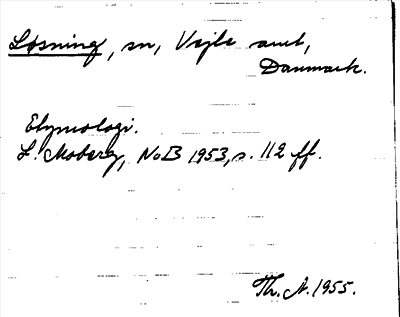 Løsning, sn, Vejle amt,
Danmark.
Etymologi.
L. Moberg, NoB 1953, s. 112 ff.
Th. A. 1955.